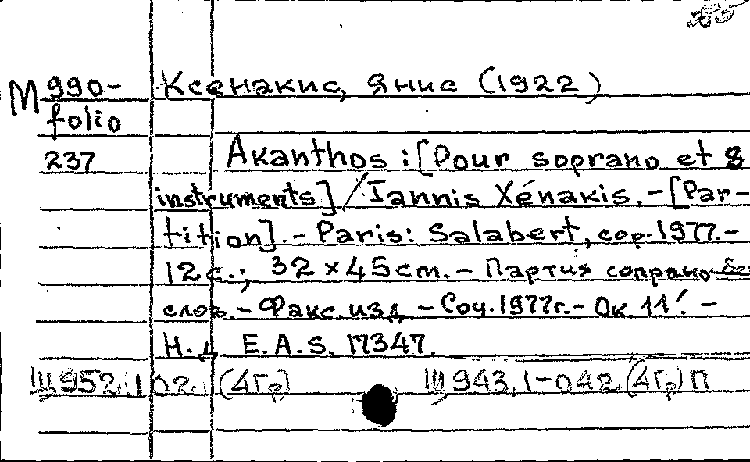 М 990- Ксенакис, Янис (1922)
folio
237 Akanthos : [Pour soprano et 8
instruments] / Iannis Xénakis. – [Par-
tition]. – Paris: Salabert, cop. 1977. –
12 с.; 32 × 45 cm. – Партия сопрано без
слов. – Факс. изд. – Соч. 1977г. – Ок. 11'. –
Н. д. E.A.S. 17347.
Ш 952.1 02. (4Гр) Ш 943.1-042 (4Гр) П